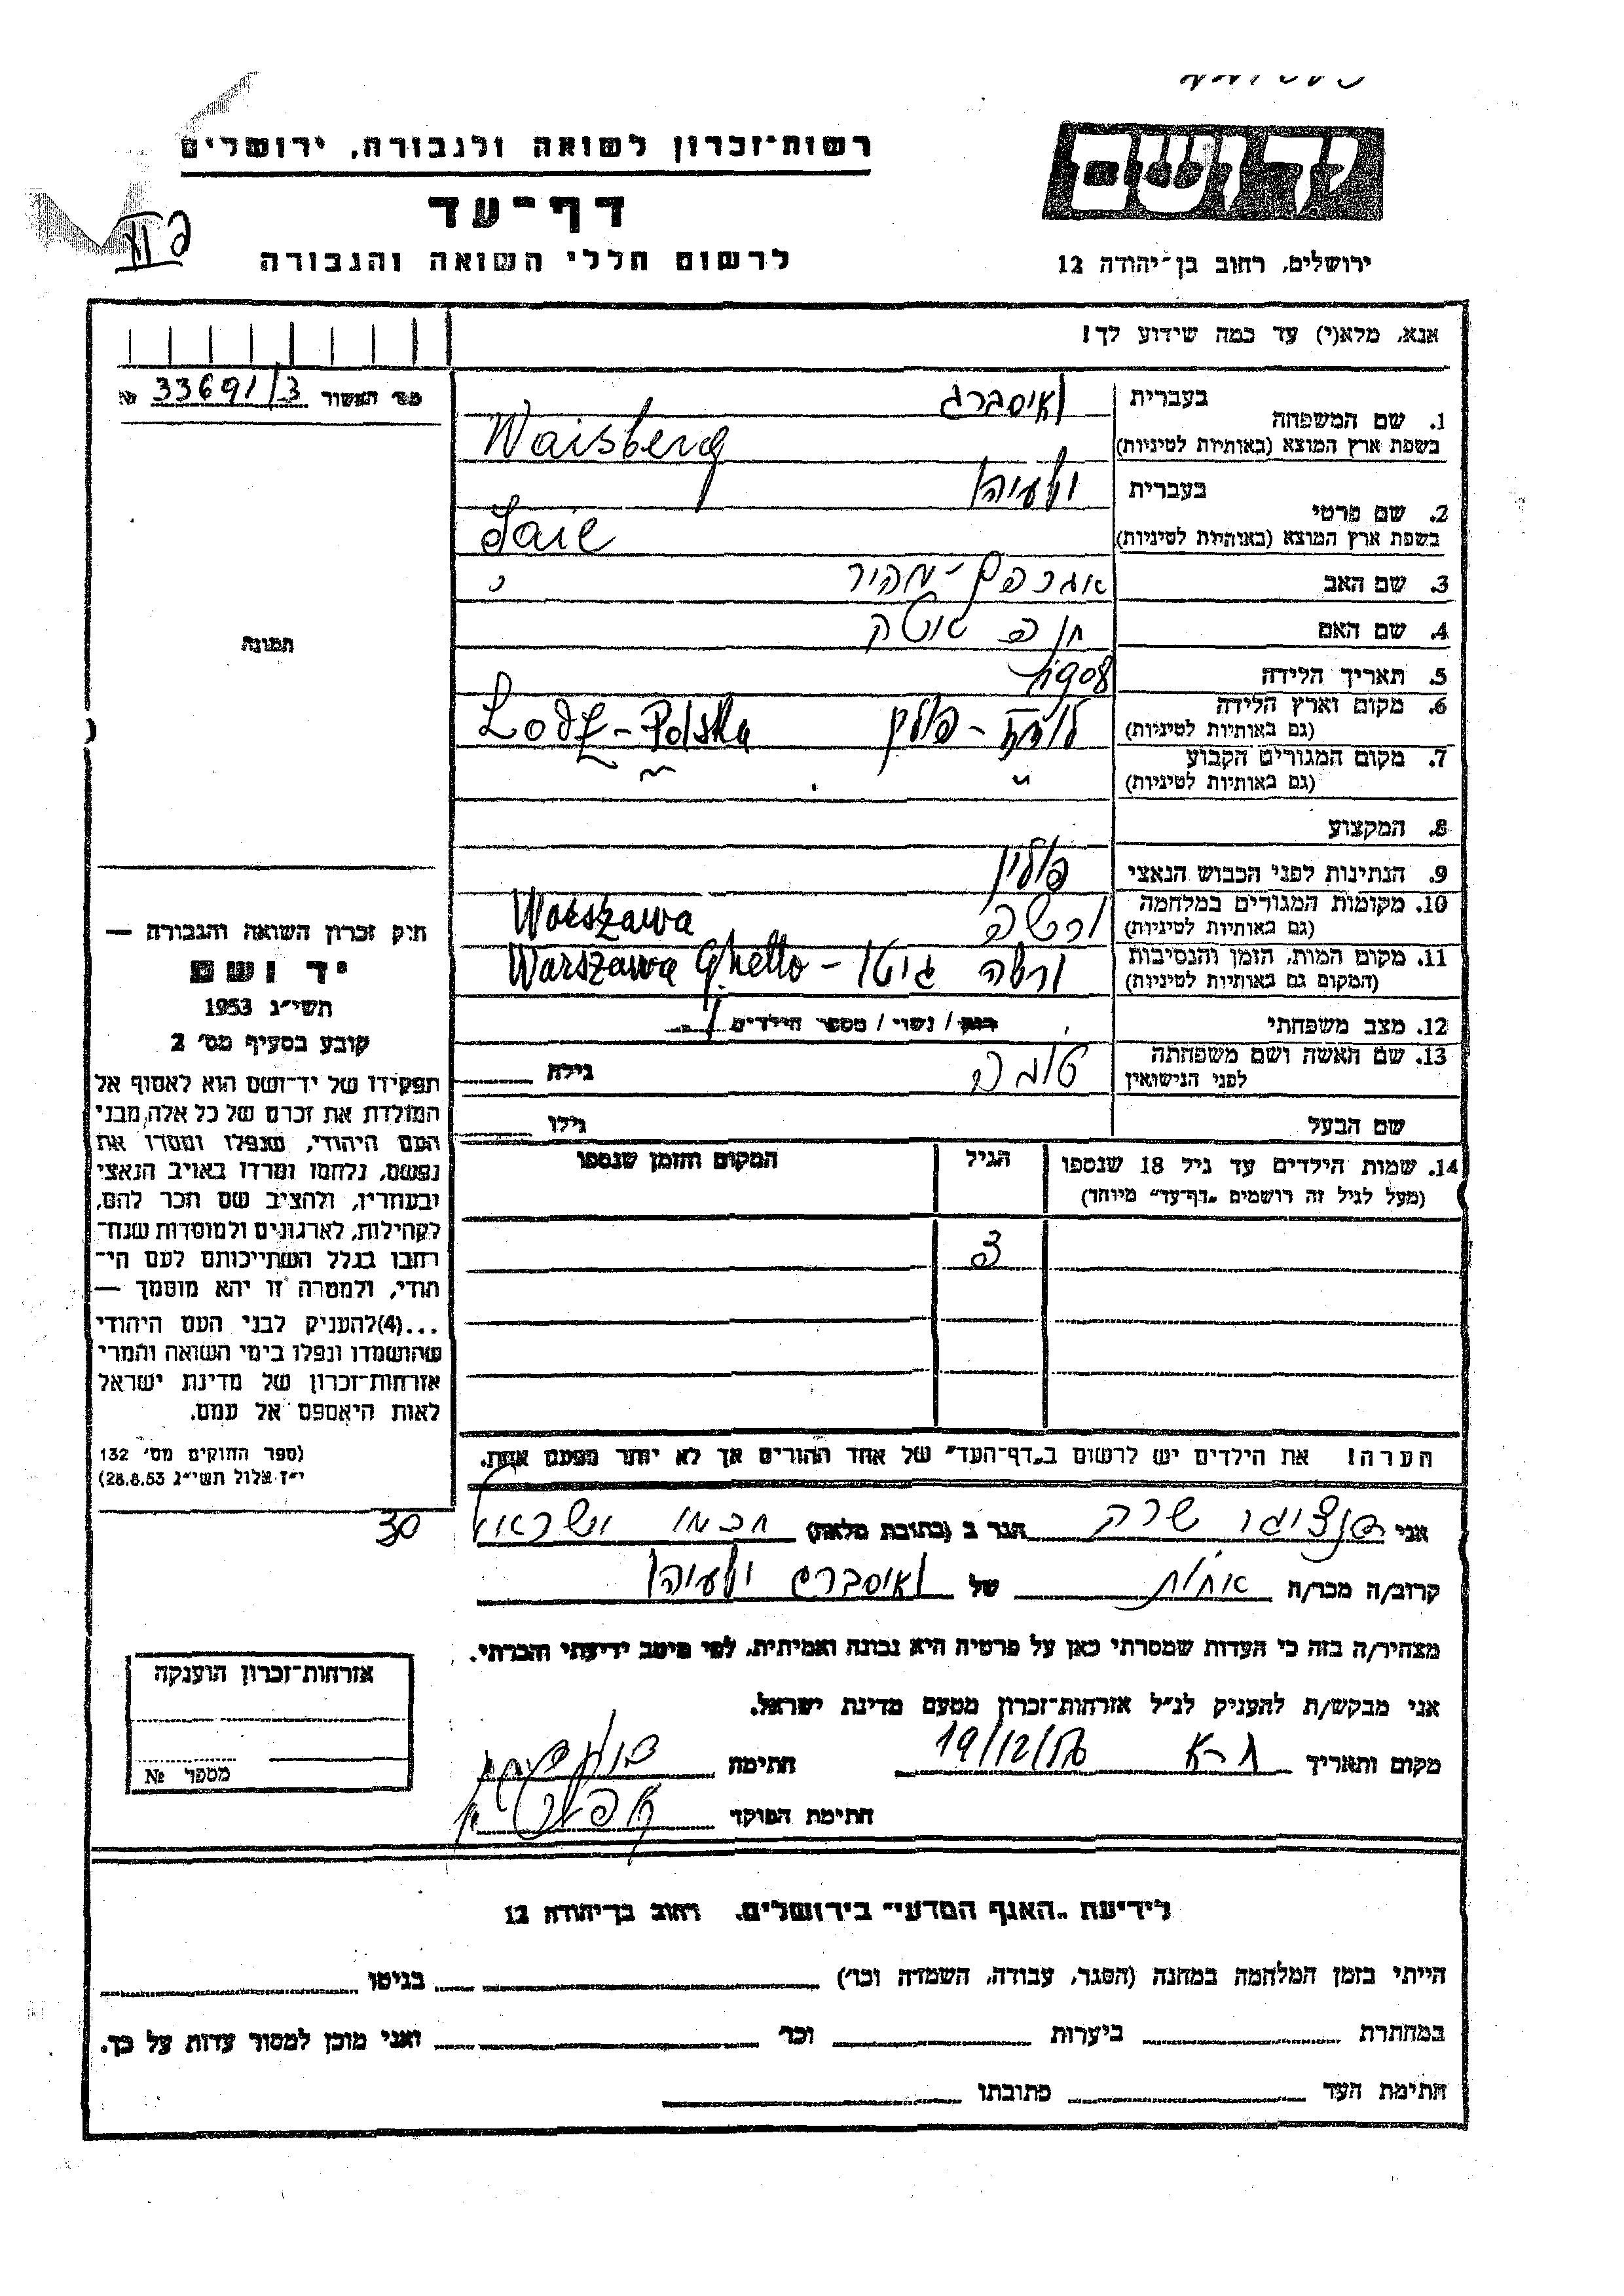 רשות־זכרון לשואה ולגבורה, ירושלים
דף־עד
לרשום חללי השואה והגבורה
יד ושם
ירושלים, רחוב בן־יהודה 12
אנא, מלא(י) עד כמה שידוע לך!
מס׳ האשור 33691/3 №
1. שם המשפחה
בעברית וואיסברג
בשפת ארץ המוצא (באותיות לטיניות) Waisberg
2. שם פרטי
בעברית ישעיהו
בשפת ארץ המוצא (באותיות לטיניות)
3. שם האב אברהם-מאיר
4. שם האם חנה
5. תאריך הלידה 1908
6. מקום וארץ הלידה
(גם באותיות לטיניות) לודז - פולין Lodz - Polska
7. מקום המגורים הקבוע
(גם באותיות לטיניות)
8. המקצוע
9. הנתינות לפני הכבוש הנאצי פולין
10. מקומות המגורים במלחמה
(גם באותיות לטיניות) ורשה Warszawa
11. מקום המות, הזמן והנסיבות
(המקום גם באותיות לטיניות) ורשה גיטו - Warszawa Ghetto
12. מצב משפחתי רווק / נשוי / מספר הילדים 1
13. שם האשה ושם משפחתה
לפני הנישואין טובה גילה
שם הבעל גילו
14. שמות הילדים עד גיל 18 שנספו
(מעל לגיל זה רושמים „דף־עד” מיוחד)
הגיל
המקום והזמן שנספו
3
הערה! את הילדים יש לרשום ב„דף־העד” של אחד ההורים אך לא יותר מפעם אחת.
תמונה
חיק זכרון השואה והגבורה —
יד ושם
תשי״ג 1953
קובע בסעיף מס׳ 2
תפקידו של יד־ושם הוא לאסוף אל
המולדת את זכרם של כל אלה, מבני
העם היהודי, שנפלו ומסרו את
נפשם, נלחמו ומרדו באויב הנאצי
ובעוזריו, ולהציב שם וזכר להם,
לקהילות, לארגונים ולמוסדות שנח־
רבו בגלל השתייכותם לעם הי־
הודי, ולמטרה זו יהא מוסמך —
...(4) להעניק לבני העם היהודי
שהושמדו ונפלו בימי השואה והמרי
אזרחות־זכרון של מדינת ישראל
לאות היאספם אל עמם.
(ספר החוקים מס׳ 132
י״ז אלול תשי״ג 28.8.53)
אני שרה הגר ב (כתובת מלאה) חכמי ישראל 30
קרוב/ה מכר/ה אחות של וואיסברג ישעיהו
מצהיר/ה בזה כי העדות שמסרתי כאן על פרטיה היא נכונה ואמיתית, לפי מיטב ידיעתי והכרתי.
אני מבקש/ת להעניק לנ״ל אזרחות־זכרון מטעם מדינת ישראל.
מקום ותאריך ת-א 19/12/56 חתימה
חתימת הפוקד
אזרחות־זכרון הוענקה
מספר №
לידיעת „האגף המדעי” בירושלים, רחוב בן־יהודה 12
הייתי בזמן המלחמה במחנה (הסגר, עבודה, השמדה וכו׳) בגיטו
במחתרת ביערות וכו׳ ואני מוכן למסור עדות על כך.
חתימת העד כתובתו